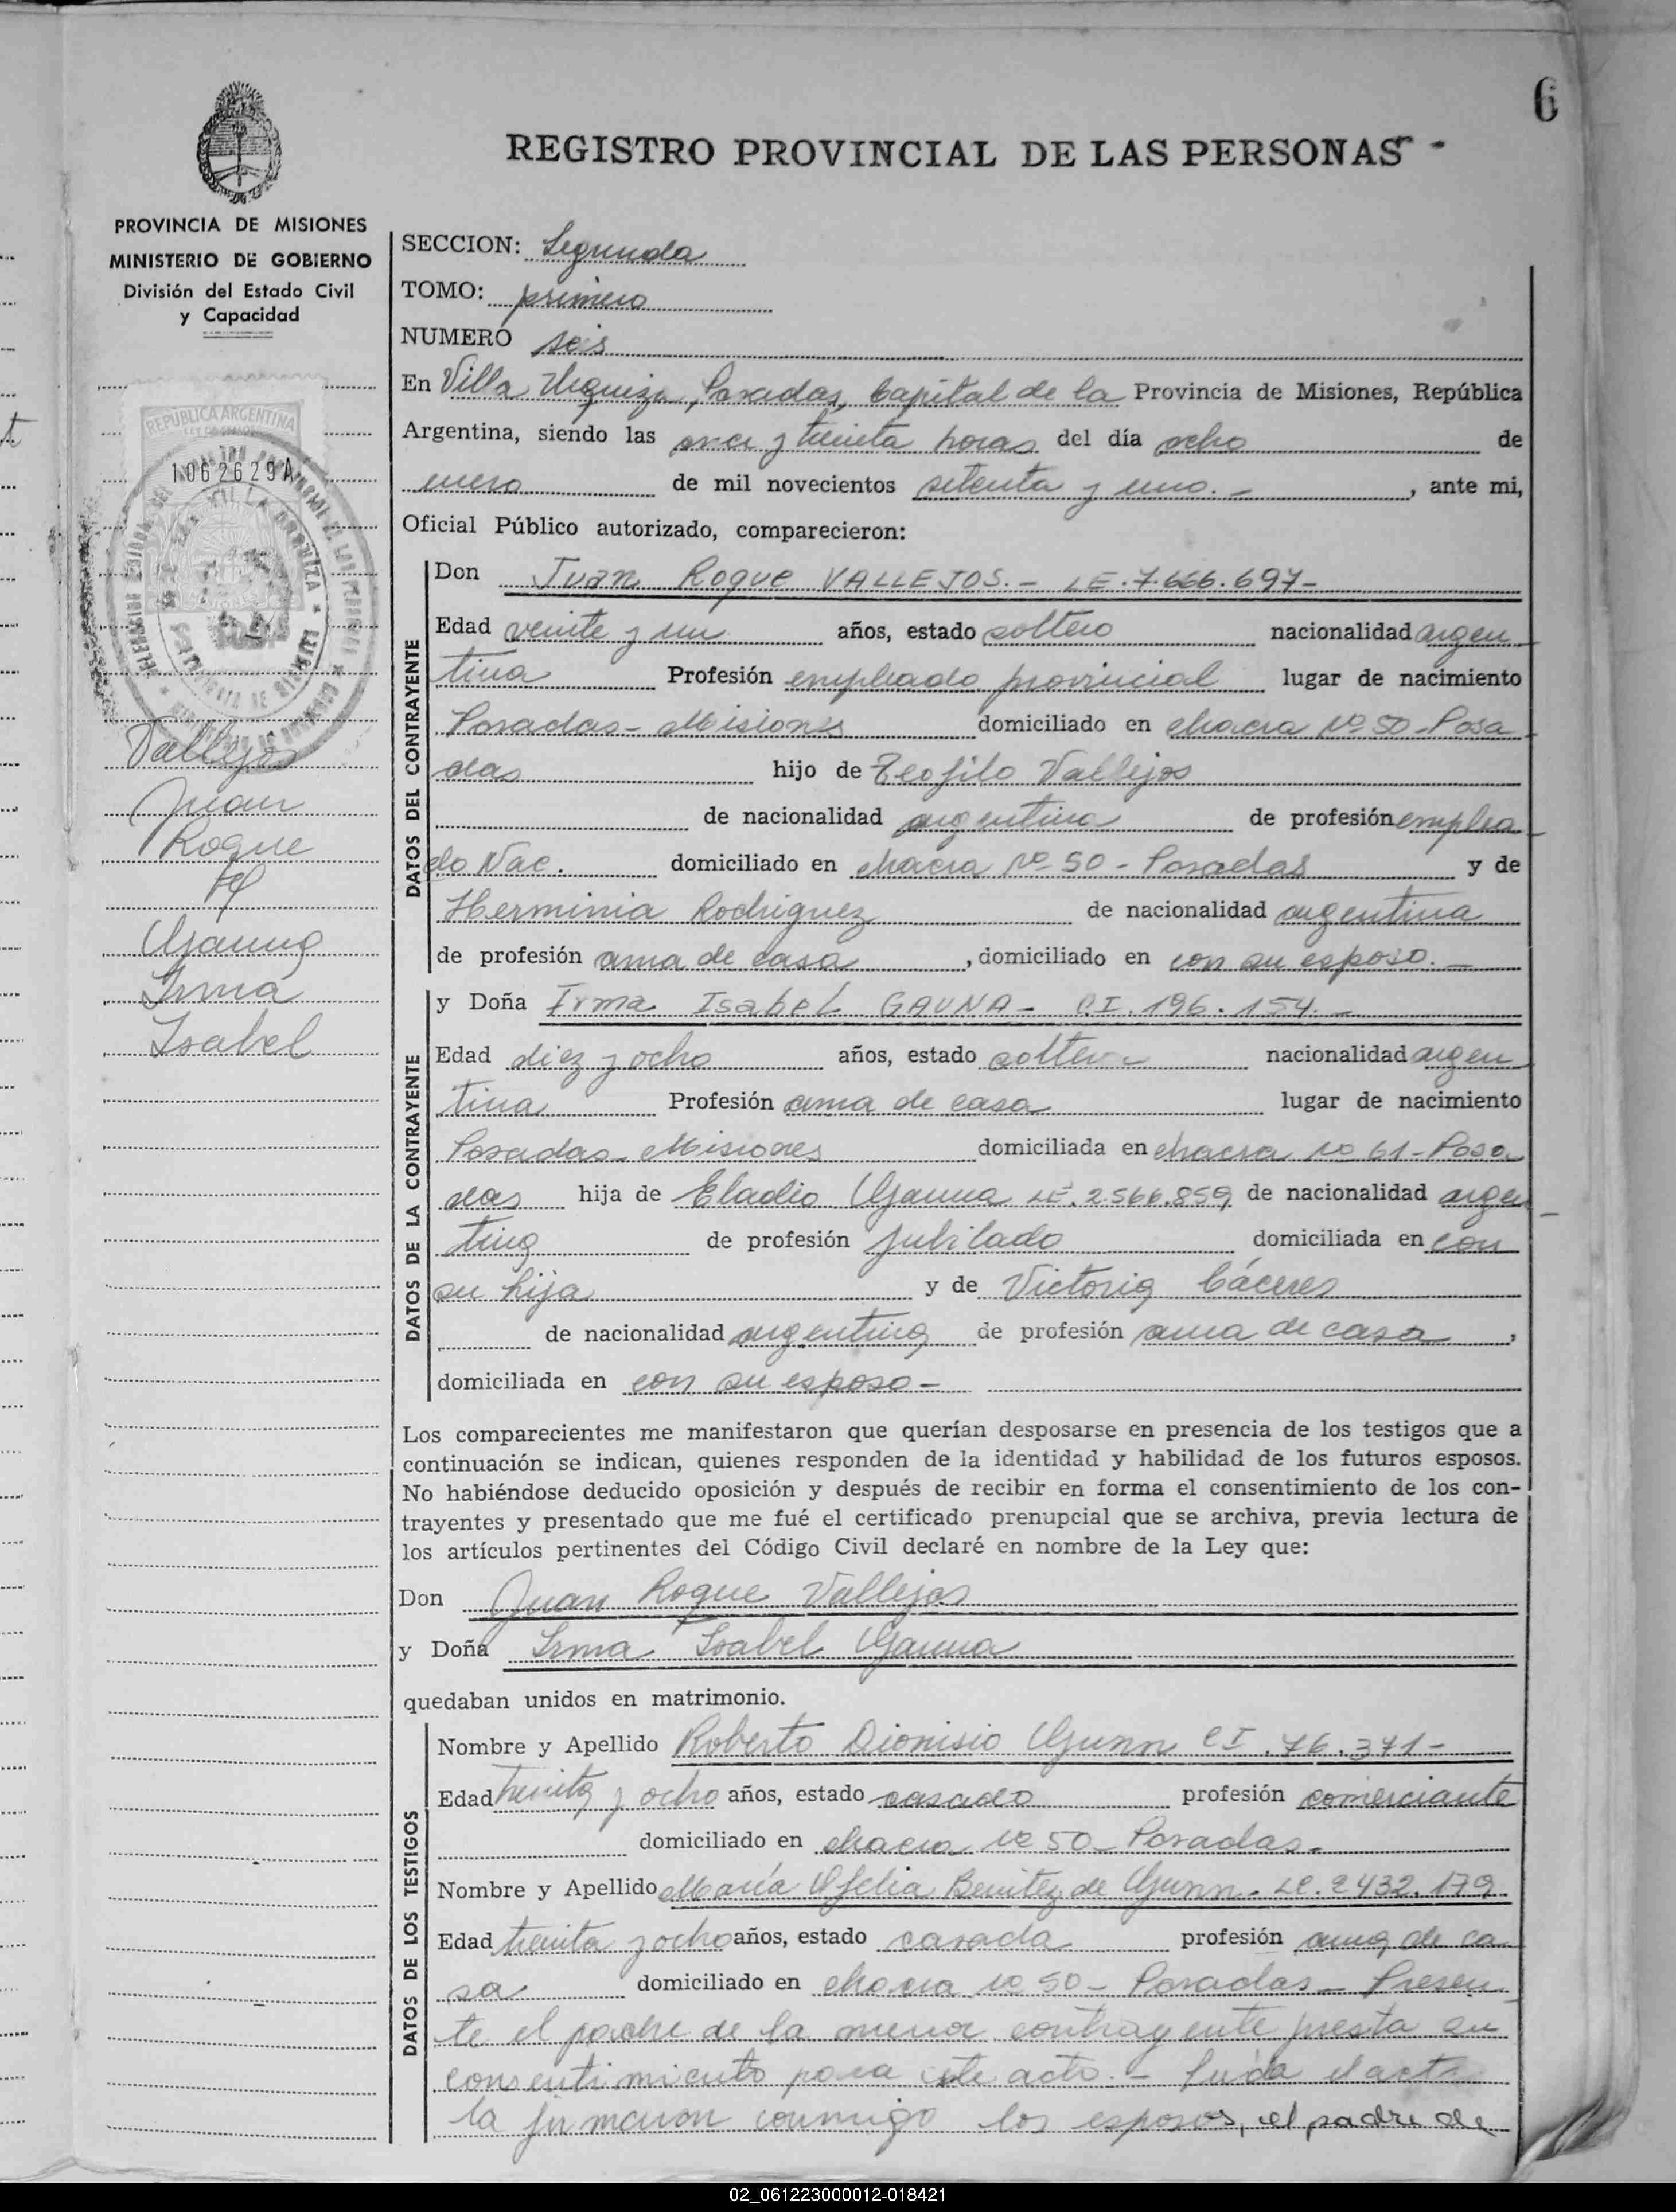 6
REGISTRO PROVINCIAL DE LAS PERSONAS -
PROVINCIA DE MISIONES
MINISTERIO DE GOBIERNO
División del Estado Civil
y Capacidad
REPUBLICA ARGENTINA
1062629A
Vallejos
Juan
Roque
y
Gauna
Irma
Isabel
SECCION: Segunda
TOMO: primero
NUMERO seis
En Villa Urquiza, Posadas, Capital de la Provincia de Misiones, República
Argentina, siendo las once y treinta horas del día ocho de
enero de mil novecientos setenta y uno. - , ante mi,
Oficial Público autorizado, comparecieron:
DATOS DEL CONTRAYENTE
Don Juan Roque VALLEJOS. - LE. 7.666.697-
Edad veinte y un años, estado soltero nacionalidad argen
tina Profesión empleado provincial lugar de nacimiento
Posadas - Misiones domiciliado en chacra Nº 50 - Posa
das hijo de Teofilo Vallejos
de nacionalidad argentina de profesión emplea
do Nac. domiciliado en chacra Nº 50 - Posadas y de
Herminia Rodriguez de nacionalidad argentina
de profesión ama de casa , domiciliado en con su esposo. -
DATOS DE LA CONTRAYENTE
y Doña Irma Isabel GAUNA - CI. 196.154. -
Edad diez y ocho años, estado soltera nacionalidad argen
tina Profesión ama de casa lugar de nacimiento
Posadas - Misiones domiciliada en chacra Nº 61 - Posa
das hija de Eladio Gauna LE. 2.566.859 de nacionalidad argen
tina de profesión jubilado domiciliada en con
su hija y de Victoria Cáceres
de nacionalidad argentina de profesión ama de casa ,
domiciliada en con su esposo -
Los comparecientes me manifestaron que querían desposarse en presencia de los testigos que a
continuación se indican, quienes responden de la identidad y habilidad de los futuros esposos.
No habiéndose deducido oposición y después de recibir en forma el consentimiento de los con-
trayentes y presentado que me fué el certificado prenupcial que se archiva, previa lectura de
los artículos pertinentes del Código Civil declaré en nombre de la Ley que:
Don Juan Roque Vallejos
y Doña Irma Isabel Gauna
quedaban unidos en matrimonio.
DATOS DE LOS TESTIGOS
Nombre y Apellido Roberto Dionisio Gunn CI. 76.371-
Edad treinta y ocho años, estado casado profesión comerciante
domiciliado en chacra Nº 50 - Posadas.
Nombre y Apellido María Ofelia Benitez de Gunn. LC. 2432.179
Edad treinta y ocho años, estado casada profesión ama de ca
sa domiciliado en chacra Nº 50 - Posadas - Presen
te el padre de la menor contrayente presta su
consentimiento para este acto. - Leída el acta
la firmaron conmigo los esposos, el padre de
02_061223000012-018421